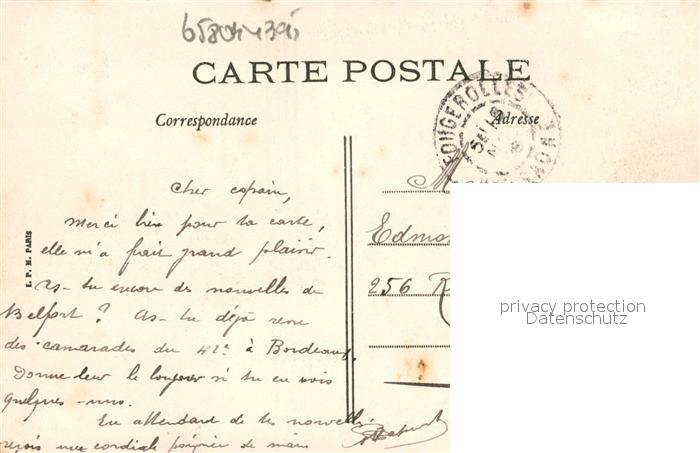 65804395
CARTE POSTALE
Correspondance
Adresse
FOUGEROLLES
Cher copain,
Merci bien pour ta carte,
elle m'a fait grand plaisir.
As-tu encore des nouvelles de
Belfort ? As-tu déjà revu
des camarades du 42e à Bordeaux.
Donne leur le bonjour si tu en vois
quelques-uns.
En attendant de tes nouvelles
reçois une cordiale poignée de main
I. P. M. PARIS
Edmo
256 R
privacy protection
Datenschutz